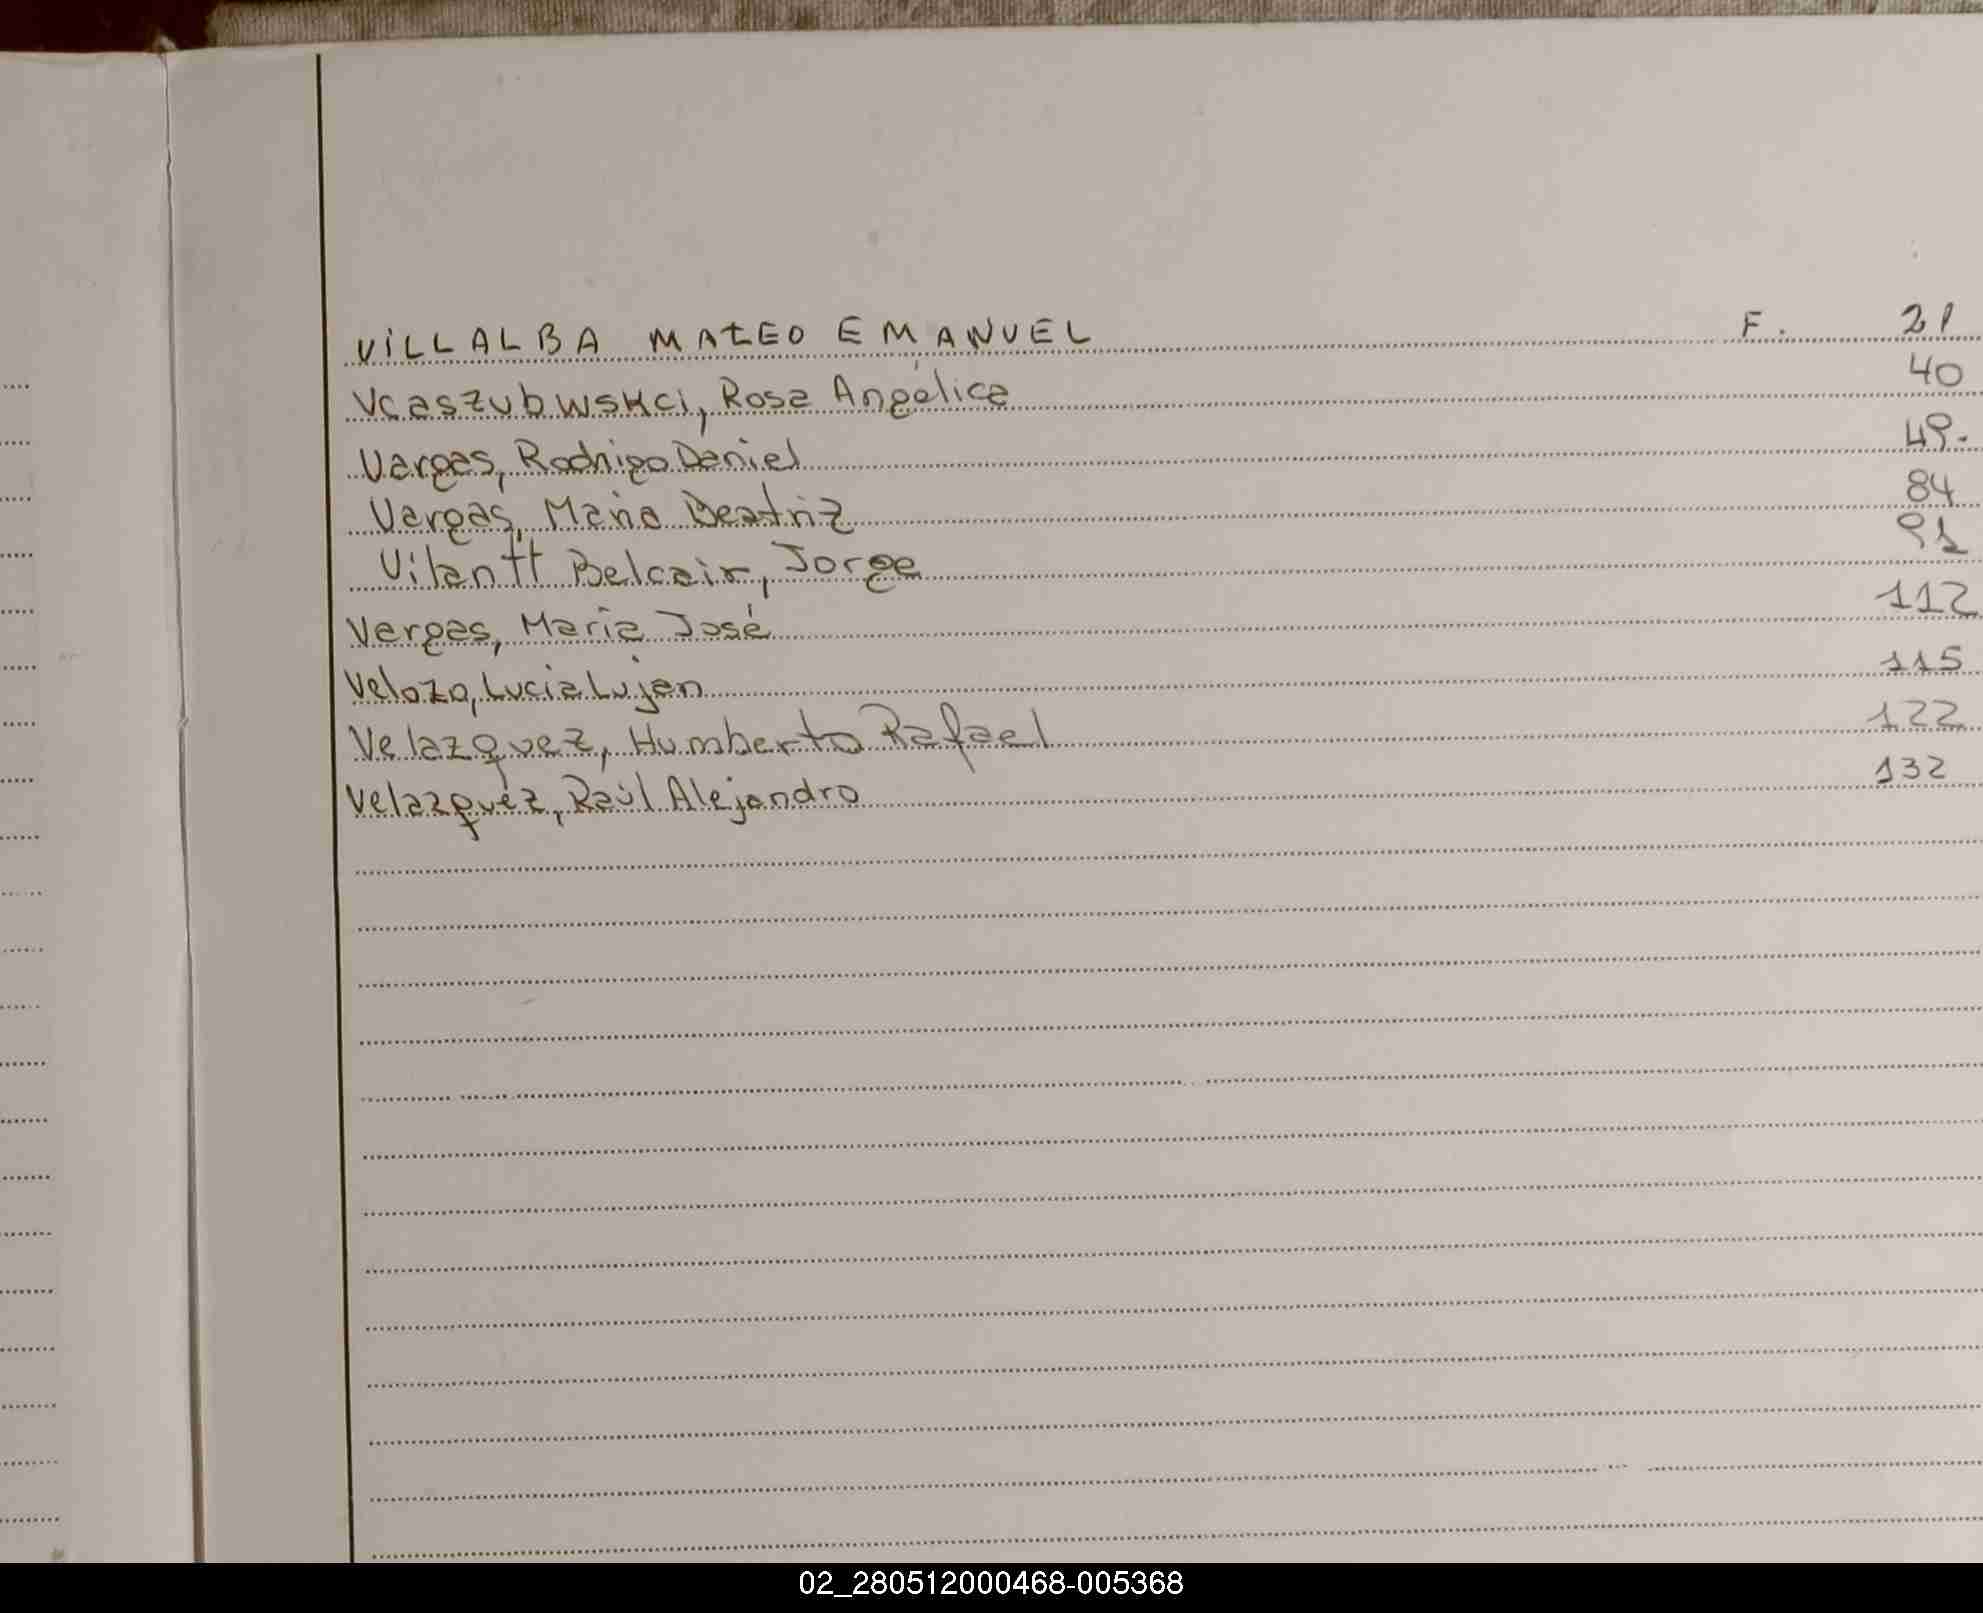 VILLALBA MATEO EMANUEL F. 21
Vcaszubwskci, Rosa Angélica 40
Vargas, Rodrigo Daniel 49.
Vargas, Maria Beatriz 84
Vilantt Belcair, Jorge 91
Vargas, Maria José 112
Velozo, Lucia Lujan 115
Velazquez, Humberto Rafael 122
Velazquez, Raúl Alejandro 132
02_280512000468-005368